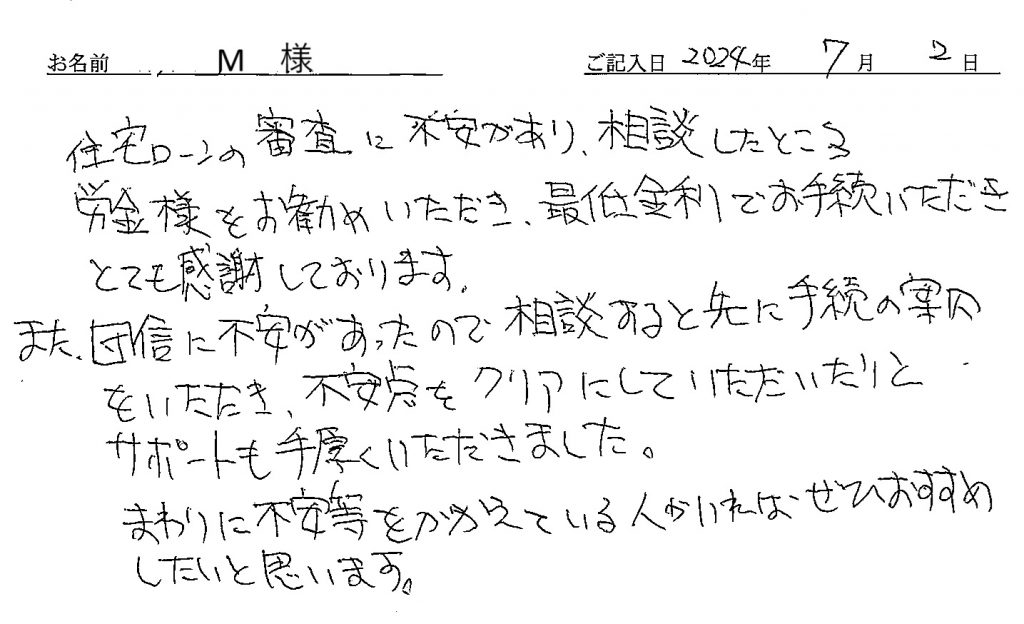 お名前 M 様 ご記入日 2024年 7月 2日
住宅ローンの審査に不安があり、相談したところ
労金様をお勧めいただき、最低金利でお手続いただき
とても感謝しております。
また、団信に不安があったので相談すると先に手続の案内
をいただき、不安点をクリアにしていただいたりと
サポートも手厚くいただきました。
まわりに不安等をかかえている人がいれば、ぜひおすすめ
したいと思います。